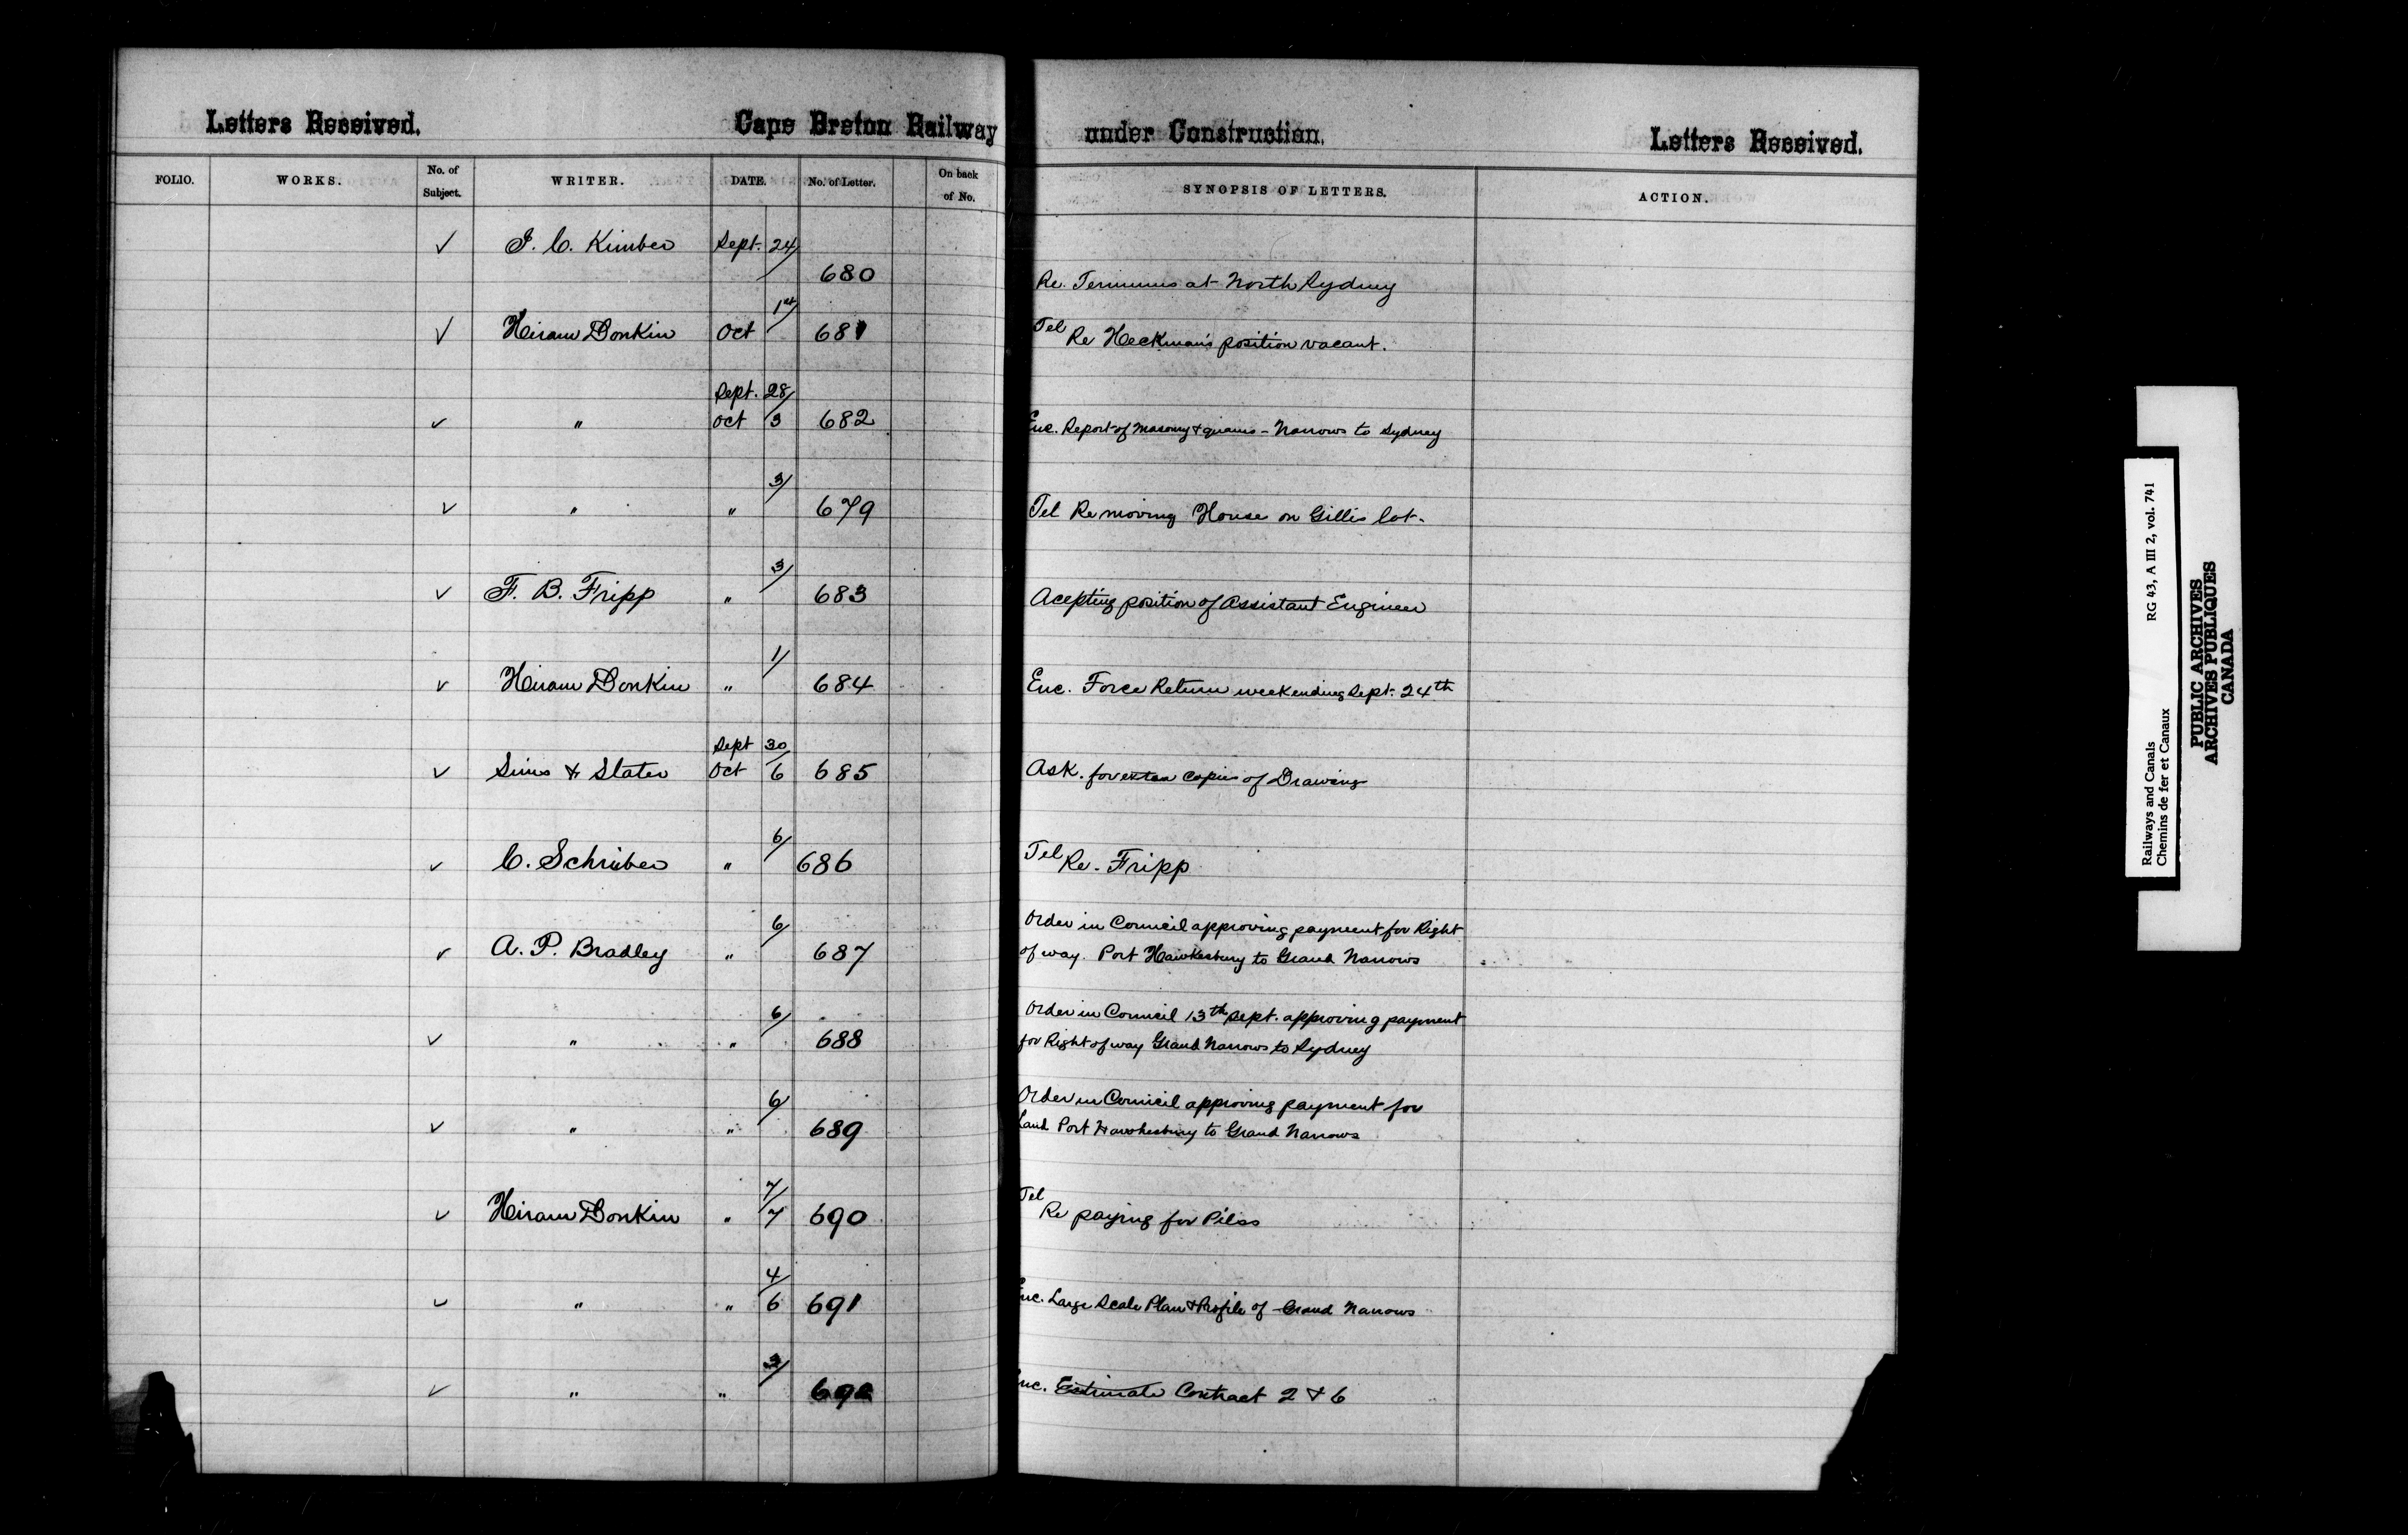 Letters Received. Cape Breton Railway under Construction. Letters Received.
FOLIO. WORKS. No. of Subject. WRITER. DATE. No. of Letter. On back of No. SYNOPSIS OF LETTERS. ACTION.
✓ J. C. Kimber Sept. 24/ 680 Re. Terminus at North Sydney
✓ Hiram Donkin Oct 1st/ 681 Tel Re Heckman's position vacant.
Sept. 28/
✓ " Oct 3 682 Enc. Report of Masonry & quaries - Narrows to Sydney
✓ " " 3/ 679 Tel Re moving House on Gillis lot.
✓ F. B. Fripp " 3/ 683 Acepting position of Assistant Engineer
✓ Hiram Donkin " 1/ 684 Enc. Force Return week ending Sept. 24th
Sept 30/
✓ Sims & Slater Oct 6 685 Ask. for extra copies of Drawing
✓ C. Schriber " 6/ 686 Tel Re. Fripp
Order in Council approving payment for Right
✓ A. P. Bradley " 6/ 687 of way. Port Hawkesbury to Grand Narrows
Order in Council 13th Sept. approving payment
✓ " " 6/ 688 for Right of way Grand Narrows to Sydney
Order in Council approving payment for
✓ " " 6/ 689 Land Port Hawkesbury to Grand Narrows
✓ Hiram Donkin " 7/7 690 Tel Re paying for Piles
✓ " " 4/6 691 Enc. Large Scale Plan & Profile of Grand Narrows
✓ " " 3/ 692 Enc. Estimate Contract 2 & 6
Railways and Canals RG 43, A III 2, vol. 741
Chemins de fer et Canaux
PUBLIC ARCHIVES
ARCHIVES PUBLIQUES
CANADA